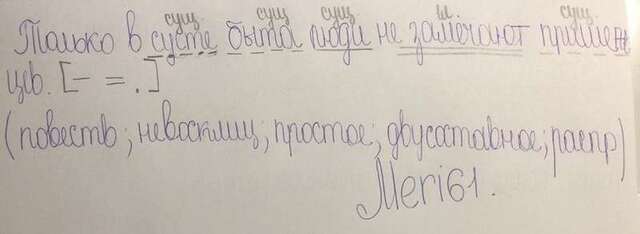 сущ сущ сущ гл сущ
Только в суете быта люди не замечают пришель
цев. [— = .]
(повеств; невосклиц; простое; двусоставное; распр)
Meri61.